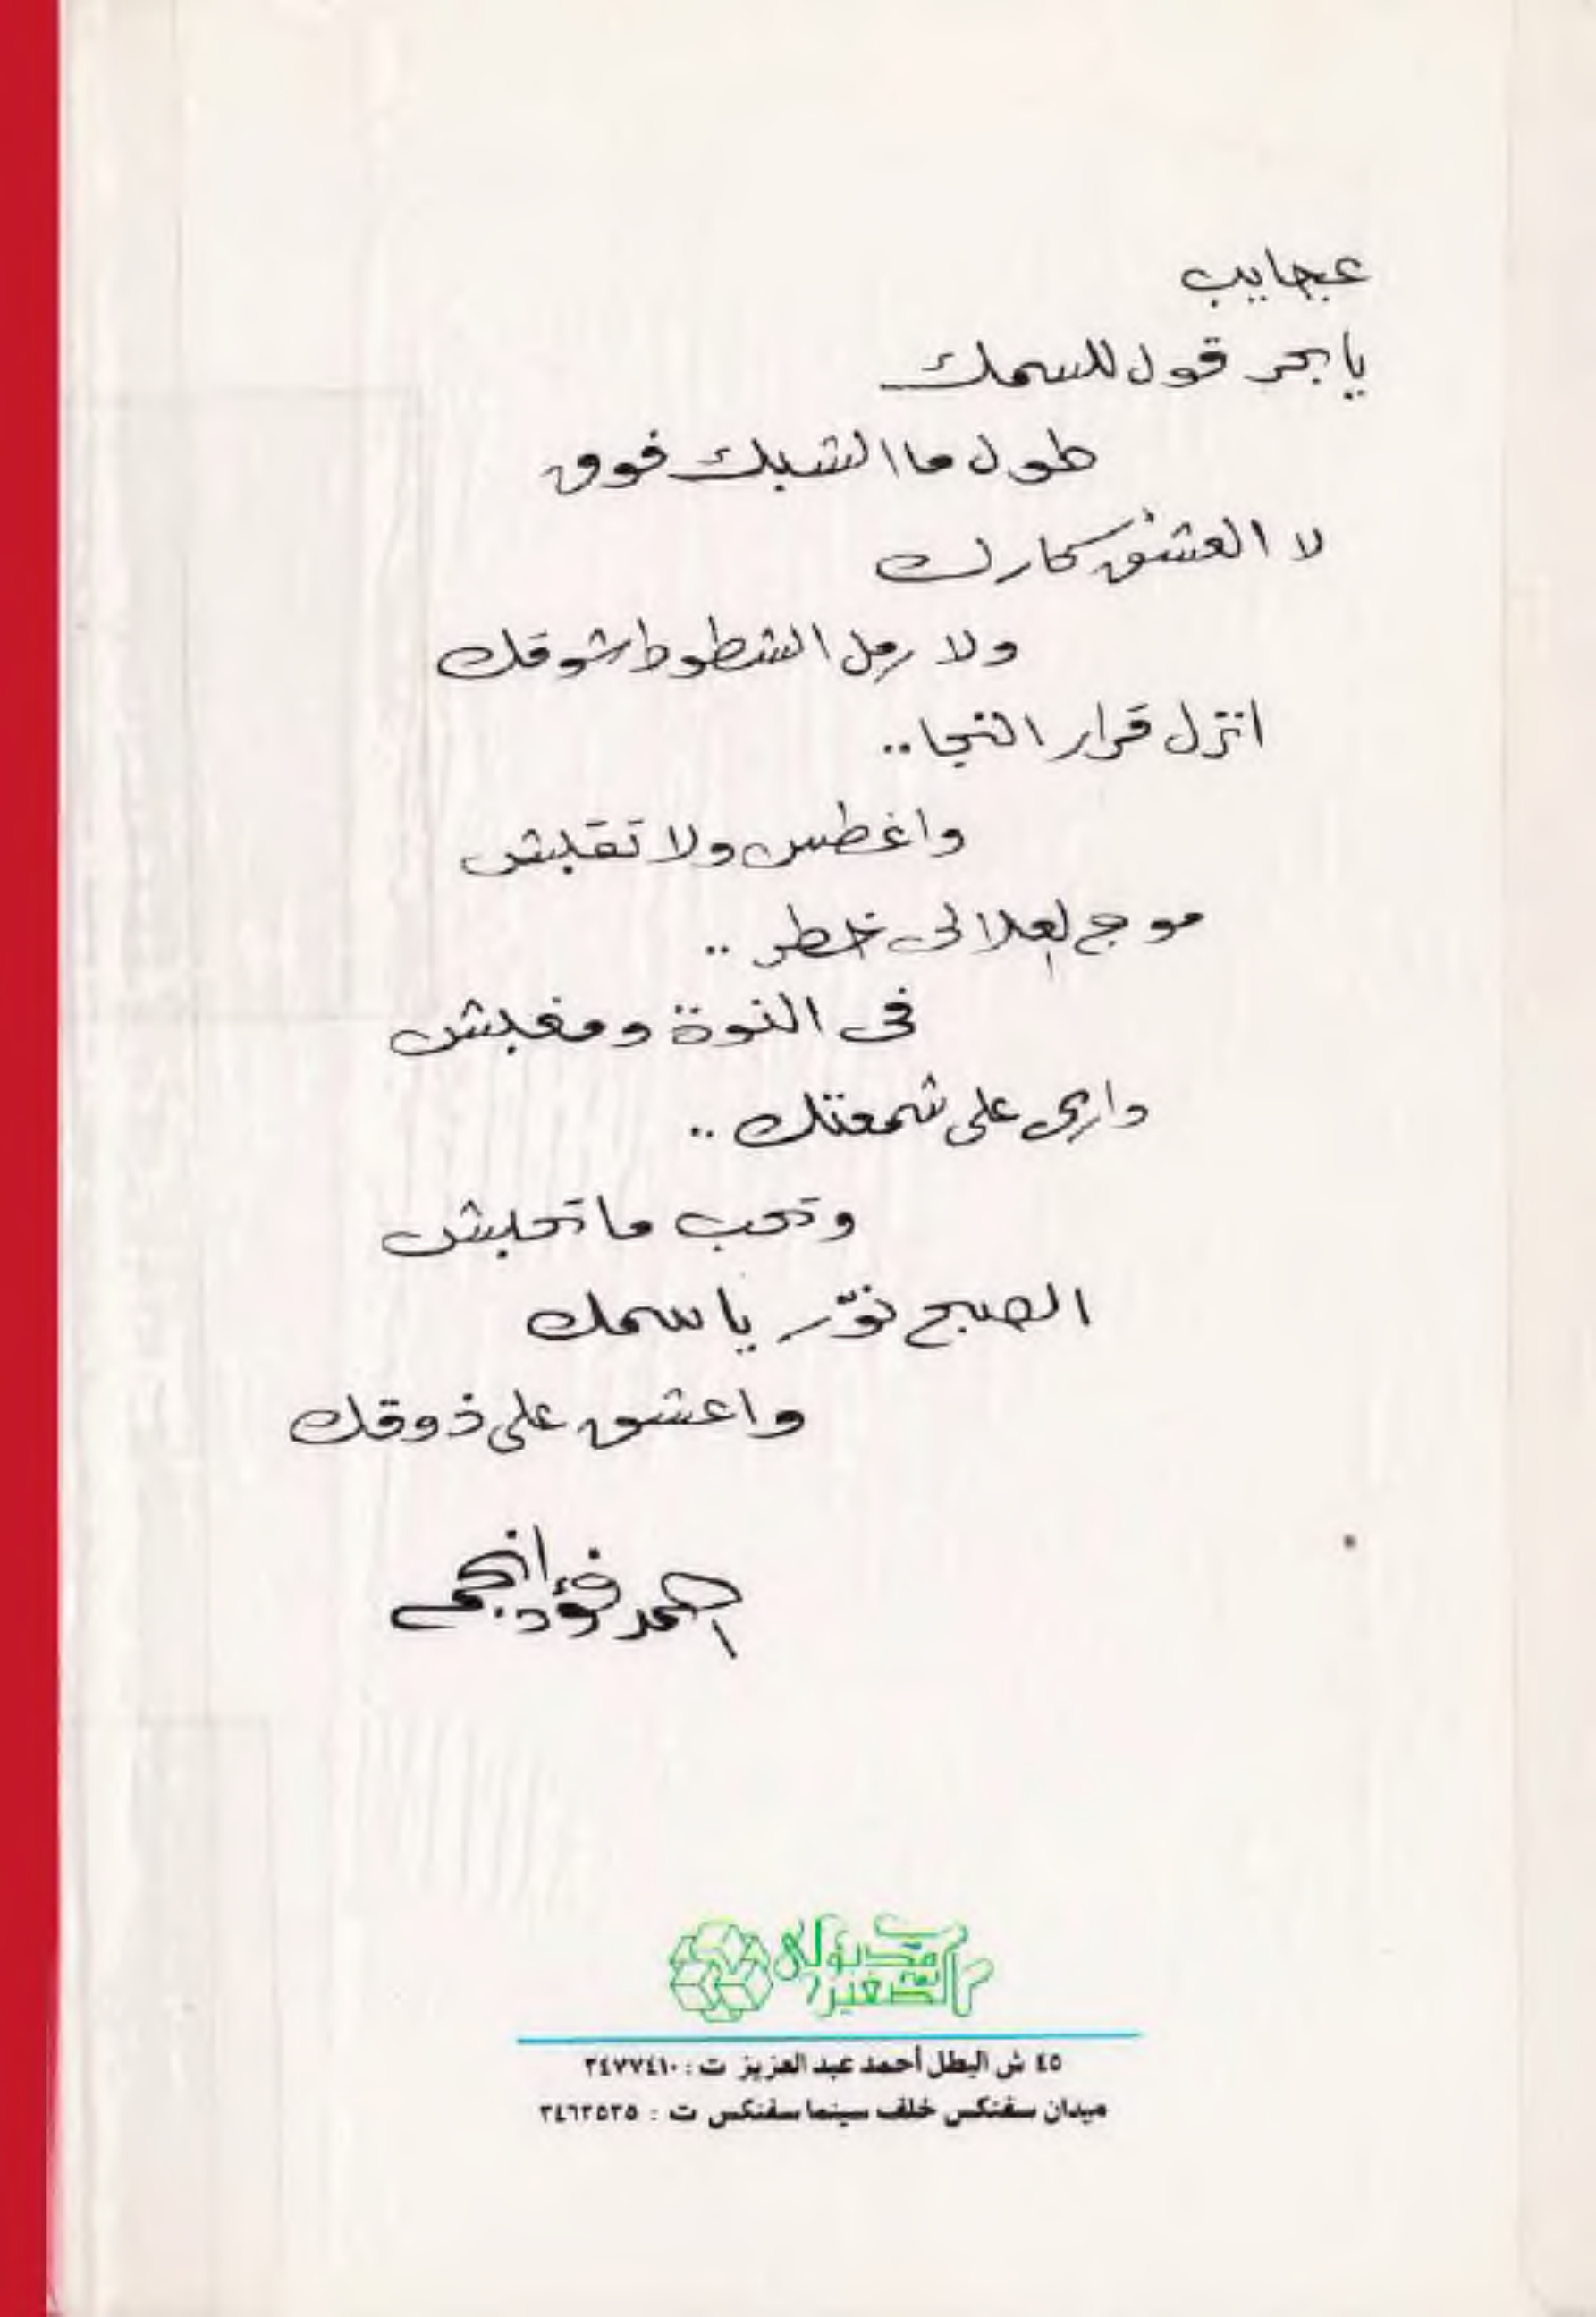 عجايب
يا بحر قول للسمك
طول ما الشبك فوق
لا العشق كارك
ولا رمل الشطوط شوقك
انزل قرار النجا..
واغطس ولا تقبش
موج العلالى خطر ..
فى النوة ومغبش
دارى على شمعتك ..
وتحب ما تحبش
الصبح نوّر يا سمك
واعشق على ذوقك
احمد فؤاد نجم
مدبولى
الصغير
٤٥ ش البطل أحمد عبد العزيز ت : ٣٤٧٧٤١٠
ميدان سفنكس خلف سينما سفنكس ت : ٣٤٦٣٥٣٥